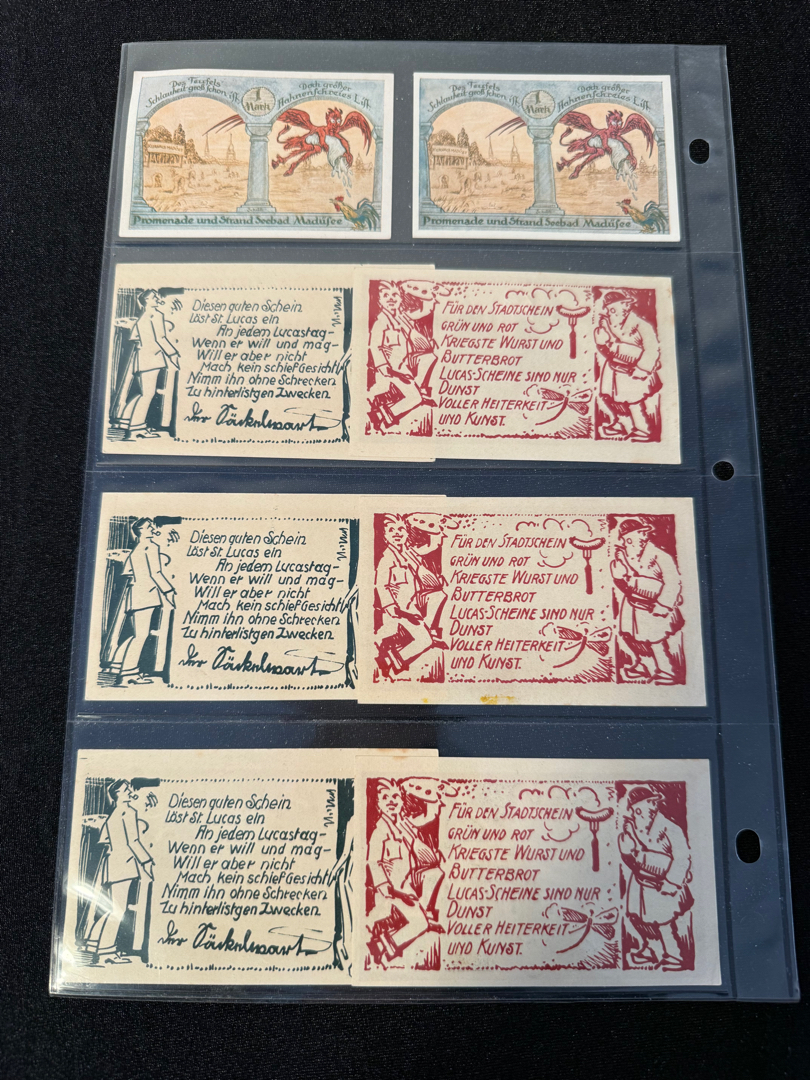 Des Teufels
Schlauheit groß schon ist
1
Mark
Doch größer
Hahnenschreies List
Promenade und Strand Seebad Madüsee
Des Teufels
Schlauheit groß schon ist
1
Mark
Doch größer
Hahnenschreies List
Promenade und Strand Seebad Madüsee
Diesen guten Schein
löst St. Lucas ein
An jedem Lucastag-
Wenn er will und mag-
Will er aber nicht
Mach, kein schief Gesicht
Nimm ihn ohne Schrecken
Zu hinterlistgen Zwecken.
Der Säckelwart
FÜR DEN STADTSCHEIN
GRÜN UND ROT
KRIEGSTE WURST UND
BUTTERBROT
LUCAS-SCHEINE SIND NUR
DUNST
VOLLER HEITERKEIT
UND KUNST.
Diesen guten Schein
löst St. Lucas ein
An jedem Lucastag-
Wenn er will und mag-
Will er aber nicht
Mach, kein schief Gesicht
Nimm ihn ohne Schrecken
Zu hinterlistgen Zwecken.
Der Säckelwart
FÜR DEN STADTSCHEIN
GRÜN UND ROT
KRIEGSTE WURST UND
BUTTERBROT
LUCAS-SCHEINE SIND NUR
DUNST
VOLLER HEITERKEIT
UND KUNST.
Diesen guten Schein
löst St. Lucas ein
An jedem Lucastag-
Wenn er will und mag-
Will er aber nicht
Mach, kein schief Gesicht
Nimm ihn ohne Schrecken
Zu hinterlistgen Zwecken.
Der Säckelwart
FÜR DEN STADTSCHEIN
GRÜN UND ROT
KRIEGSTE WURST UND
BUTTERBROT
LUCAS-SCHEINE SIND NUR
DUNST
VOLLER HEITERKEIT
UND KUNST.